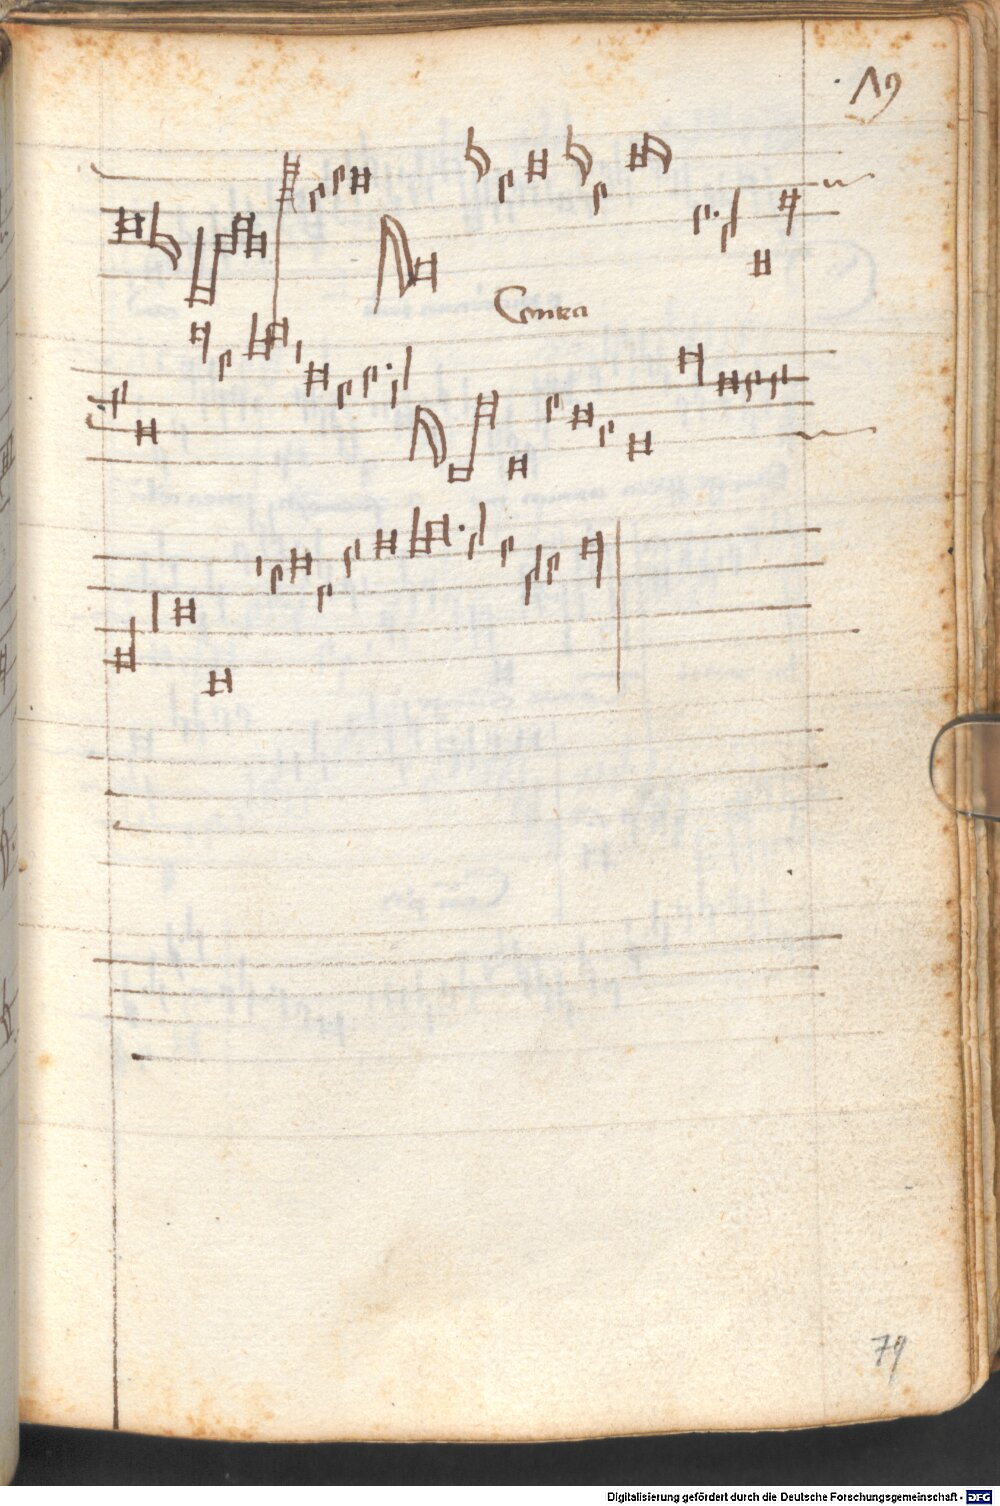 19
Contra
79
Digitalisierung gefördert durch die Deutsche Forschungsgemeinschaft - DFG